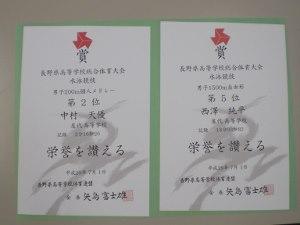 賞
長野県高等学校総合体育大会
水泳競技
男子200m個人メドレー
第2位
中村 天優
屋代高等学校
記録
栄誉を讃える
平成28年7月1日
長野県高等学校体育連盟
会長 矢島富士雄
賞
長野県高等学校総合体育大会
水泳競技
男子1500m自由形
第5位
西澤 純平
屋代高等学校
記録
栄誉を讃える
平成28年7月1日
長野県高等学校体育連盟
会長 矢島富士雄